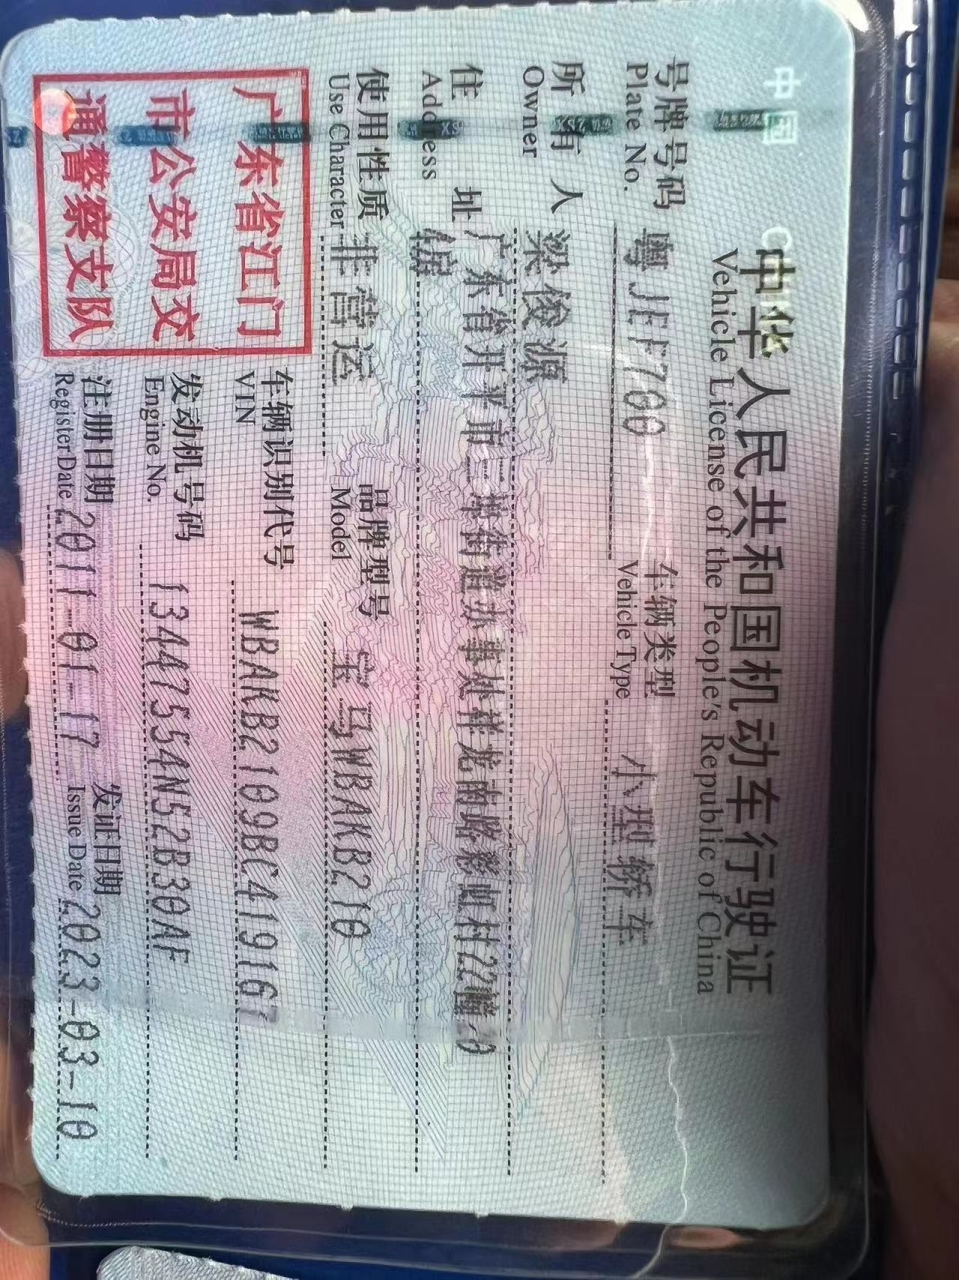 中华人民共和国机动车行驶证
Vehicle License of the People's Republic of China
号牌号码 粤JEF700 车辆类型 小型轿车
Plate No. Vehicle Type
所有人 梁俊源
Owner
住址 广东省开平市三埠街道办事处祥龙南路彩虹村22幢
Address
使用性质 非营运 品牌型号 宝马WBAKB210
Use Character Model
广东省江门
市公安局交
通警察支队
车辆识别代号 WBAKB2109BC419167
VIN
发动机号码 13447554N52B30AF
Engine No.
注册日期 2011-01-17 发证日期 2023-03-10
Register Date Issue Date